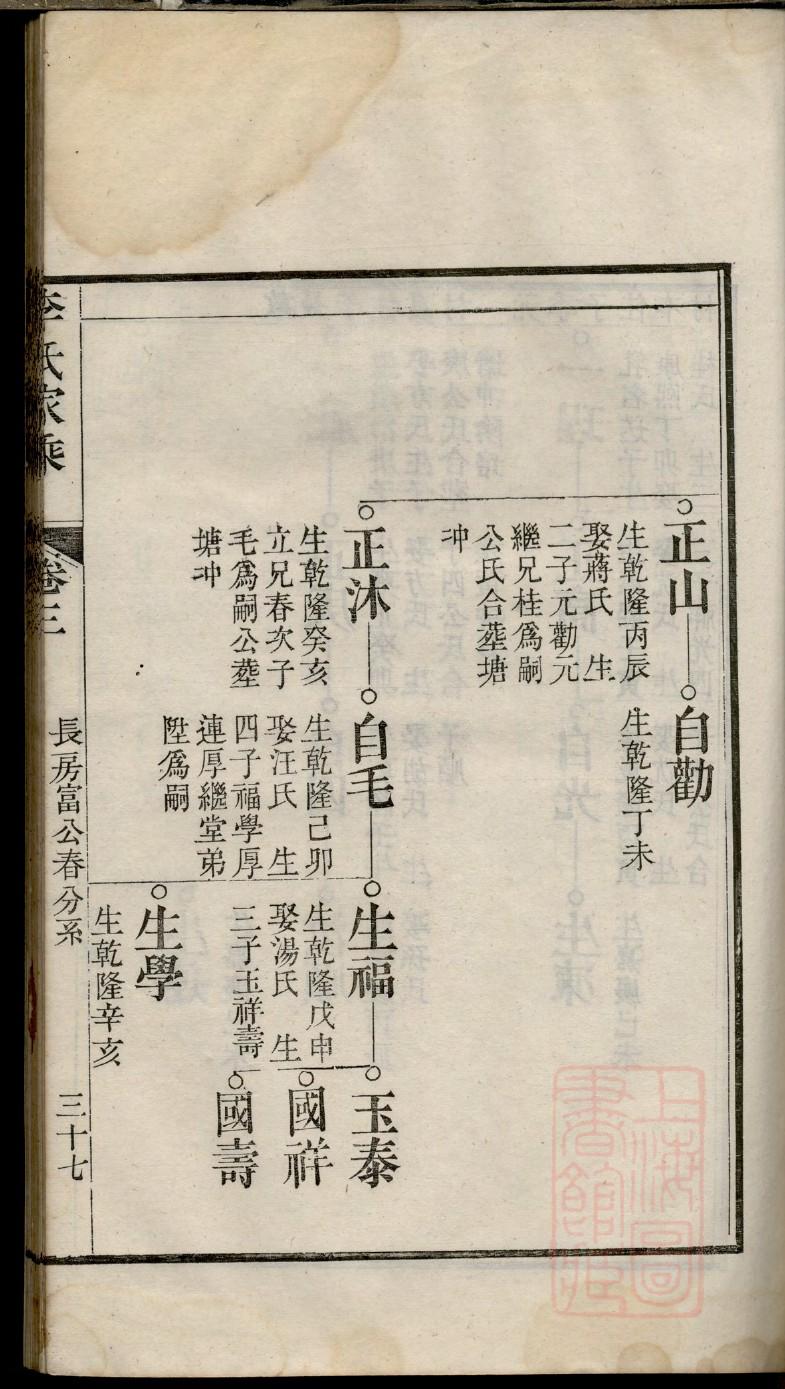 正山
生乾隆丙辰
娶蔣氏 生
二子元勸元
繼兄桂爲嗣
公氏合塟塘
冲
自勸
生乾隆丁未
正沐
生乾隆癸亥
立兄春次子
毛爲嗣公塟
塘冲
自毛
生乾隆己卯
娶汪氏 生
四子福學厚
連厚繼堂弟
陞爲嗣
生福
生乾隆戊申
娶湯氏 生
三子玉祥壽
玉泰
國祥
國壽
生學
生乾隆辛亥
李氏家乘
卷三
長房富公春分系
三十七
上海圖書館藏